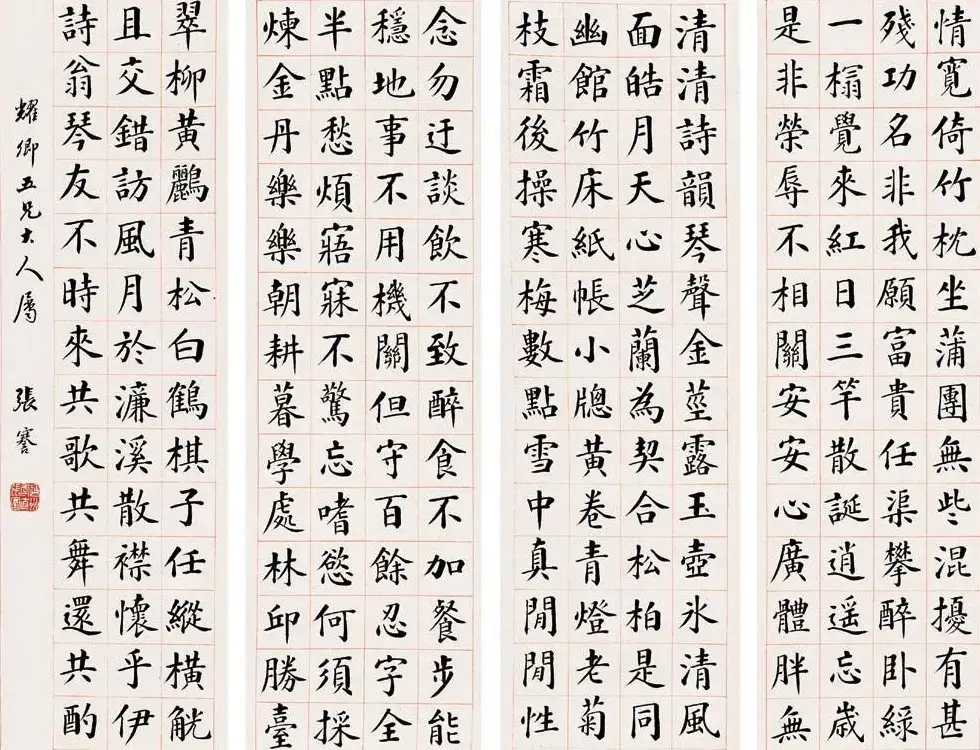 情寬倚竹枕坐蒲團無些混擾有甚
殘功名非我願富貴任渠攀醉臥綠
一榻覺來紅日三竿散誕逍遥忘歲
是非榮辱不相關安安心廣體胖無
清清詩韻琴聲金莖露玉壺氷清風
面皓月天心芝蘭為契合松柏是同
幽館竹床紙帳小牕黃卷青燈老菊
枝霜後操寒梅數點雪中真閒閒性
念勿迂談飲不致醉食不加餐步能
穩地事不用機關但守百餘忍字全
半點愁煩寤寐不驚忘嗜慾何須採
煉金丹樂樂朝耕暮學處林邱勝臺
翠柳黃鸝青松白鶴棋子任縱橫觥
且交錯訪風月於濂溪散襟懷乎伊
詩翁琴友不時來共歌共舞還共酌
耀卿五兄大人屬 張謇